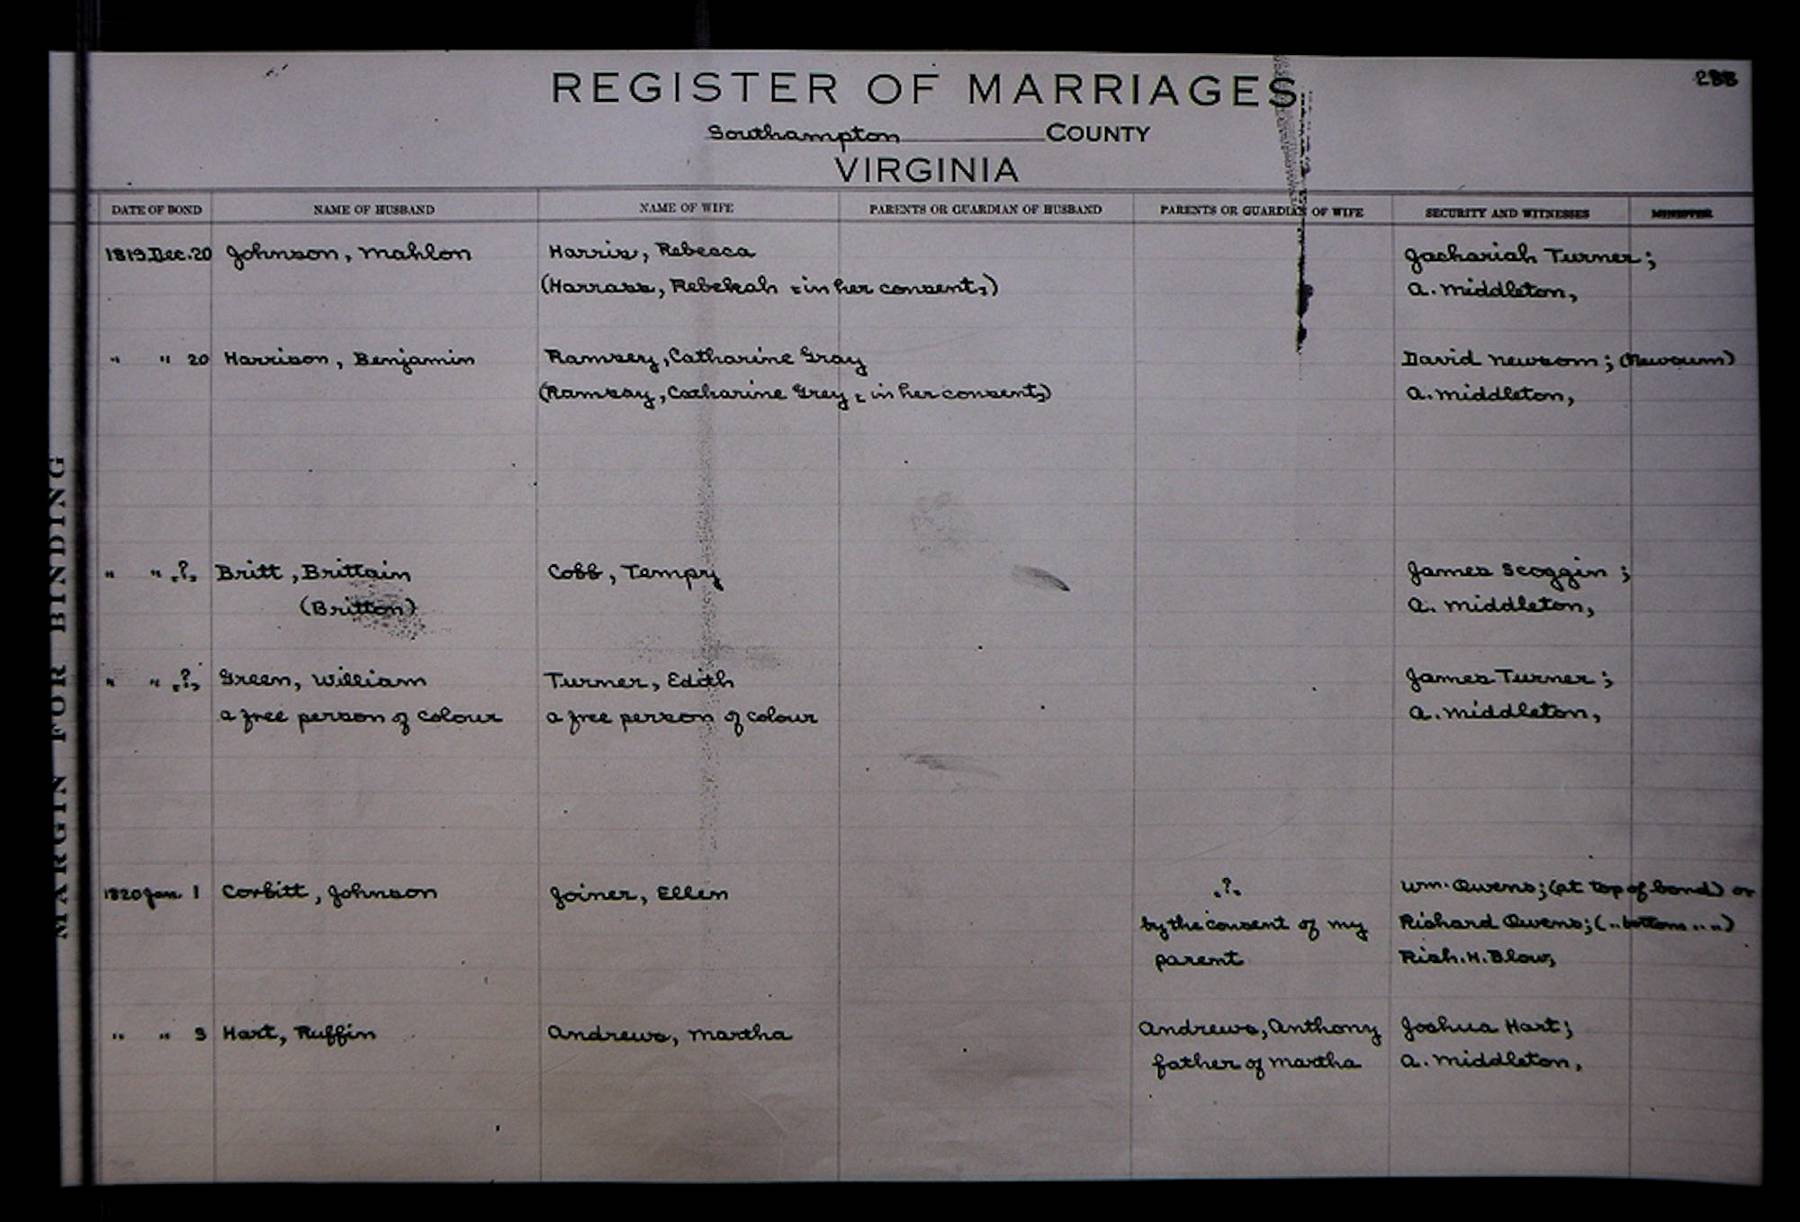 REGISTER OF MARRIAGES
Southampton COUNTY
VIRGINIA
DATE OF BOND NAME OF HUSBAND NAME OF WIFE PARENTS OR GUARDIAN OF HUSBAND PARENTS OR GUARDIAN OF WIFE SECURITY AND WITNESSES
1819 Dec. 20 Johnson, Mahlon Harris, Rebecca Zachariah Turner;
(Harrass, Rebekah in her consent,) A. Middleton,
" " 20 Harrison, Benjamin Ramsey, Catharine Gray David Newsom; (Newsum)
(Ramsay, Catharine Grey, in her consent,) A. Middleton,
" " "?" Britt, Brittain Cobb, Tempy James Scoggin;
(Britton) A. Middleton,
" " "?" Green, William Turner, Edith James Turner;
a free person of colour a free person of colour A. Middleton,
1820 Jan. 1 Corbitt, Johnson Joiner, Ellen "?" Wm. Owens; (at top of bond) or
by the consent of my Richard Owens; (" bottom " ")
parent Rich. H. Blow,
" " 3 Hart, Ruffin Andrews, Martha Andrews, Anthony Joshua Hart;
father of Martha A. Middleton,
MARGIN FOR BINDING